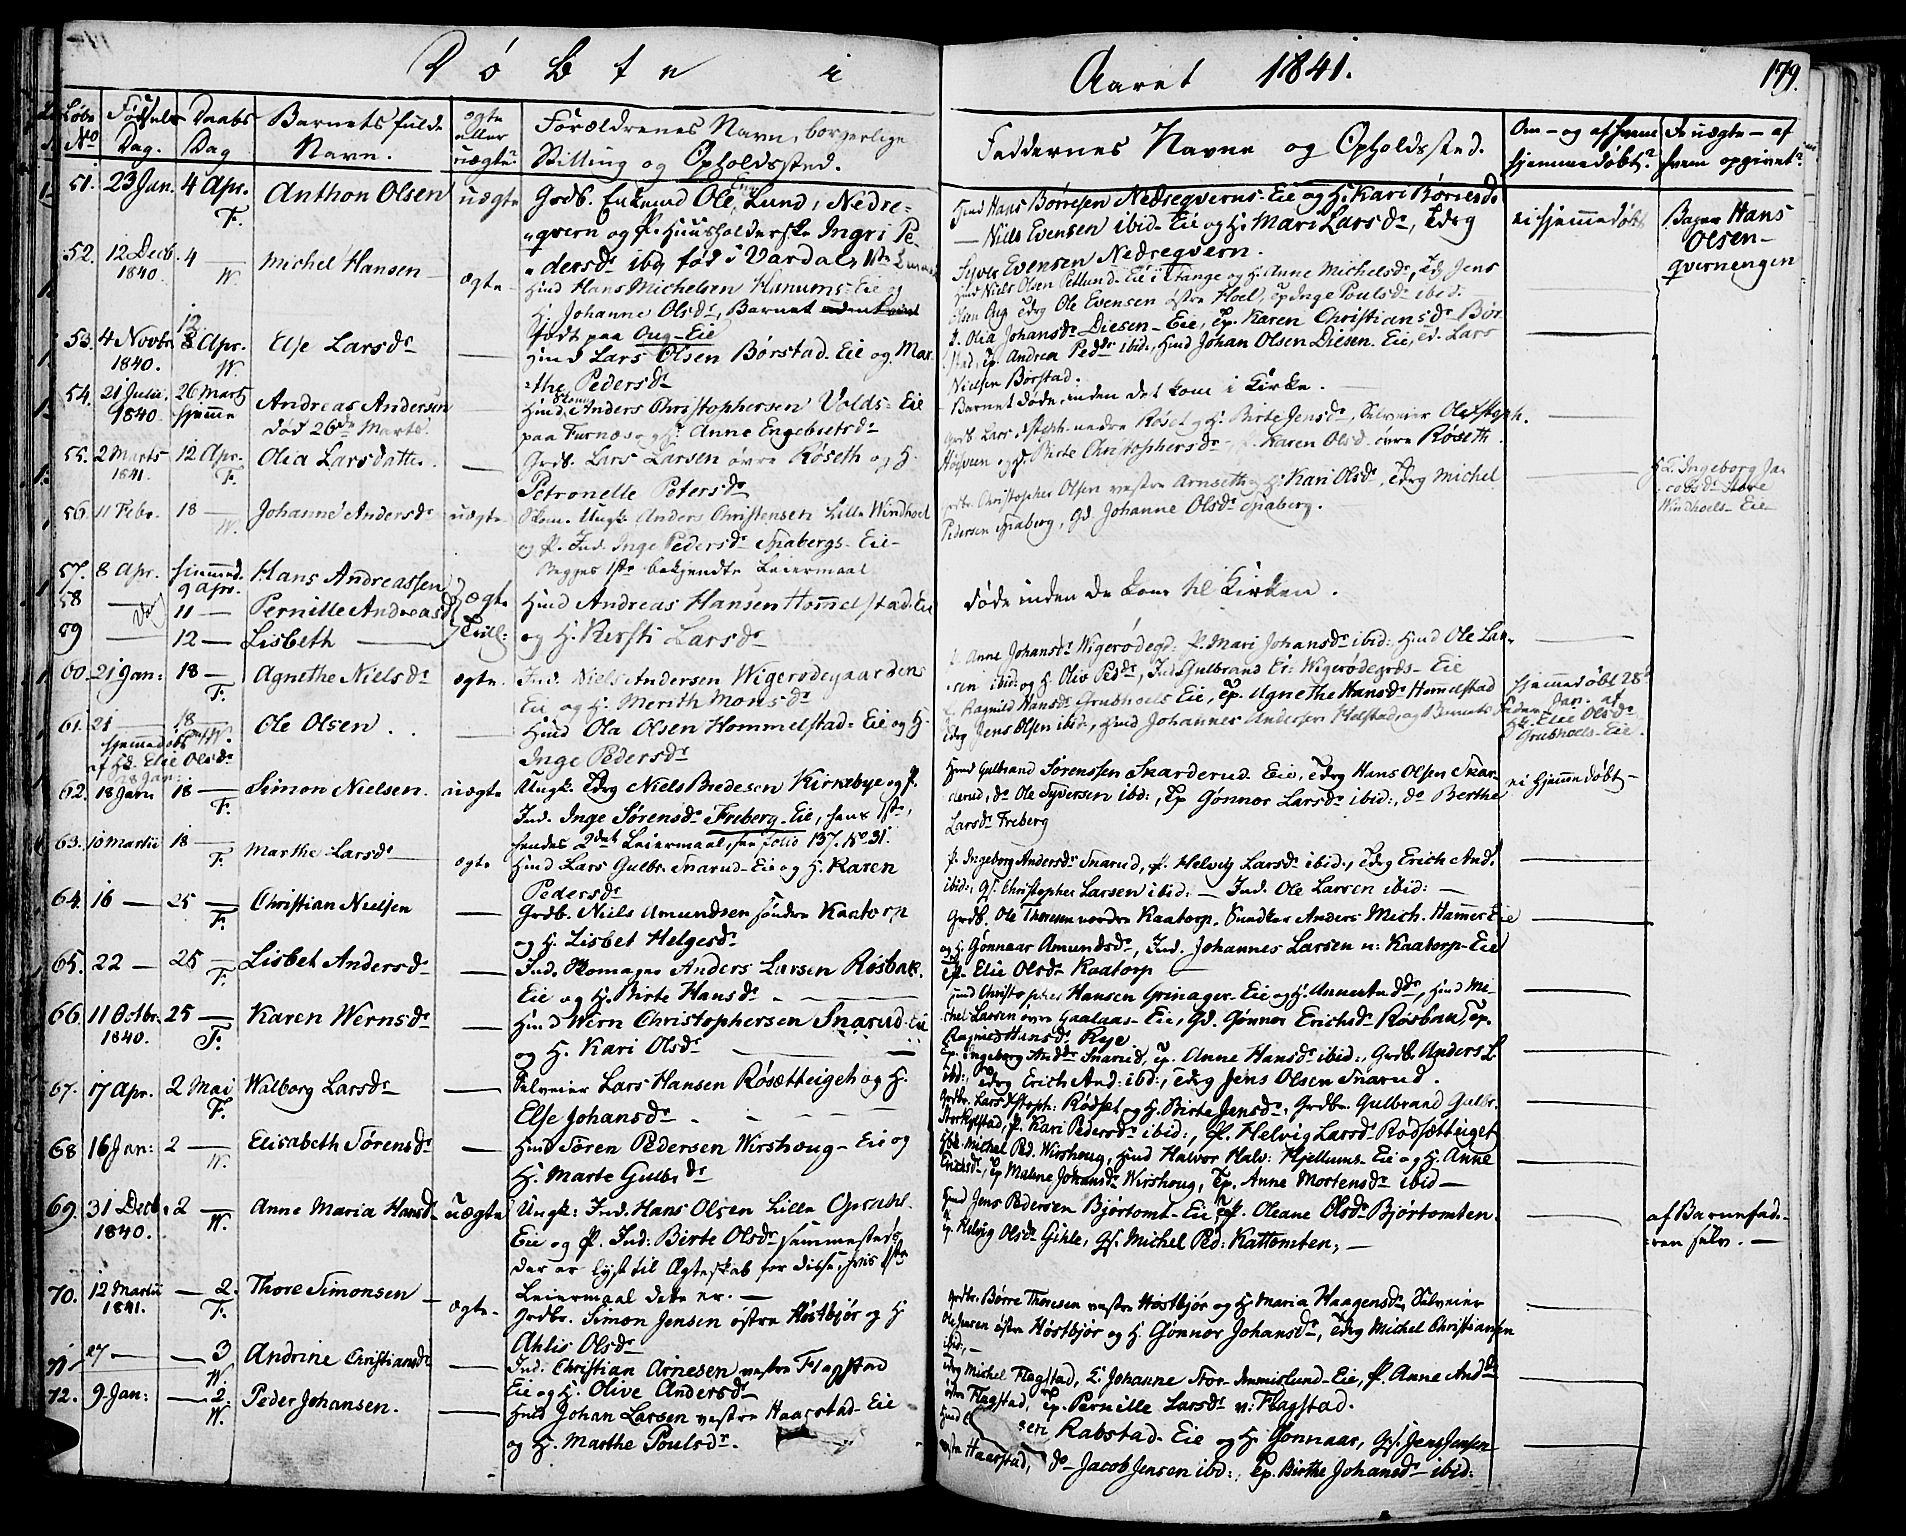 Døbte i
Aaret 1841.
179.
Løbe No
Fødsels Dag.
Daabs Dag
Barnets fulde Navn.
ægte eller uægte?
Forældrenes Navn, borgerlige Stilling og Opholdssted.
Faddernes Navne og Opholdssted.
Om - og af hvem hjemmedøbt?
Er uægte - af hvem opgivet?
51. 23 Jan. 4 Apr. F. Anthon Olsen uægte
Grdb. Enkemd Ole Lund, Nedre=
qvern og P. Huusholderske Ingri Pe-
dersdr ibid. fød i Vardal, 1ste
Hans Børresen Nedreqverns-Eie og H. Kari
Niels Evensen ibid. Eie og H. Mari Larsdr,
Syver Evensen Nedreqvern.
ei hjemmedøbt
Hans
Olsen-
qvernengen
52. 12 Decb. 1840. 4 — W. Michel Hansen ægte
Huusd Hans Michelsen Hanums-Eie og
H. Johanne Olsdr, Barnet
født paa Oug-Eie
Niels Olsen Eie i Stange og H. Anne Michelsdr, Jens
Ole Evensen østre Hoel, Ep. Inge Poulsdr ibid.
53. 4 Novbr. 1840. Apr. W. Else Larsdr —
Huusd Lars Olsen Børstad-Eie og Mar=
=the Pedersdr
Olia Johansdr Diesen-Eie, Ep. Karen Christiansdr Bør=
stad, Ep. Andrea Pedr ibid., Huusd Johan Olsen Diesen-Eie, Lars
Nielsen Børstad.
54. 21 Julii 1840. 26 Marts hjemme Andreas Andersen
død 26de Marts.
Huusd. Anders Christophersen Volds-Eie
paa Furnæs og H. Anne Engebretsdr
Barnet døde inden det kom i Kirke.
55. 2 Marts 1841. 12 Apr. F. Olia Larsdatter. —
Grdb. Lars Larsen øvre Røseth og H.
Petronelle Petersdr
Grdb. Lars nedre Røset og H. Birte Jensdr, Selveier
og P. Birte Christophersdr, P. Karen Olsd. øvre Røseth.
56. 11 Febr. 18 — W. Johanne Andersdr uægte
Skom. Ungk. Anders Christensen Lille Windhoel
og P. Ind. Inge Pedersdr Spabergs-Eie-
Begges 1ste bekjendte Leiermaal
Grdbr. Christopher Olsen vestre Arnseth og H. Kari Olsdr, Michel
Pedersen Spaberg, Gd. Johanne Olsdr Spaberg.
Ingeborg Ja=
cobsdr Store
Windhoels-Eie
57. 8 Apr. hjemmed. 9 Apr. Hans Andreassen
58 — 11 — Pernille Andreasd.
59 — 12 — Lisbeth —
ægte
Trill:
Huusd Andreas Hansen Hommelstad-Eie
og H. Kersti Larsdr
døde inden de kom til Kirken.
60. 21 Jan: 18 — F. Agnethe Nielsdr ægte.
Ind. Niels Andersen Wigerødegaardens
Eie og H. Merith Monsdr
Anne Johansdr Wigerødegd: P. Mari Johansdr ibid: Huusd Ole Lar=
sen ibid: og H. Oliv Pedr, Ind. Gulbrand Er: Wigerødegrds-Eie
61. 21 — 18 — W. Ole Olsen. . —
hjemmedøbt af Elie Olsdr
28 Jan:
Huusd Ola Olsen Hommelstad-Eie og H.
Inge Pedersdr
Ragnild Hansdr Grubhoels Eie, Ep. Agnethe Hansdr Hommelstad
Jens Olsen ibid:, Huusd Johannes Andersen Holstad, og Barnets Fader
hjemmedøbt 28de
Jan. af
Elie Olsdr
Grubhoels-Eie.
62. 18 Janr 18 — F. Simon Nielsen. uægte
Ungk. Niels Bredesen Kirkebye og P.
Ind. Inge Sørensdr Freberg-Eie, hans 1ste,
hendes 2det Leiermaal, see folio 137. No 31.
Huusd Gulbrand Sørenssen Skarderud-Eie, Hans Olsen Skar=
derud, do Ole Syversen ibd:, Ep Gønnor Larsdr ibid:, do Berthe
Larsdr Freberg
ei hjemmedøbt -
63. 10 Martii 18 — F. Marthe Larsdr ægte
Huusd Lars Gulbr. Snarud-Eie og H. Karen
Pedersdr
P. Ingeborg Andersdr Snarud, P. Helvig Larsdr ibid:, Erich And.
ibid:, Gf. Christopher Larsen ibid: — Ind. Ole Larsen ibid: —
64. 16 — 25 — F. Christian Nielsen —
Grdb. Niels Amundsen søndre Kaatorp
og H. Lisbet Helgesdr
Grdb. Ole Thoresen nordre Kaatorp, Anders Mich. Hamers Eie
og H. Gønnaar Amundsdr, Ind. Johannes Larsen n: Kaatorp-Eie
P. Elie Olsdr Kaatorp
65. 22 — 25 — F. Lisbet Andersdr —
Ind. Skomager Anders Larsen Røsbak-
Eie og H. Birte Hansdr.
Huusd Christopher Hansen Grinager-Eie og H. Anne Anddr, Huusd Mi=
chel Larsen øvre Gaalaas-Eie, Gd. Gønnor Erichsdr Røsbak, Ep.
Ragnild Hansdr Rye
66. 11 Octbr. 1840. 25 — F. Karen Wernsdr —
Huusd Wern Christophersen Snarud-Eie
og H. Kari Olsdr
Ep. Ingeborg Anddr Snarud, Ep. Anne Hansdr ibid:, Grdb. Anders L.
ibd:, Erich And: ibd:, Jens Olsen Snarud.
67. 17 Apr. 2 Mai F. Walborg Larsdr —
Selveier Lars Hansen Røsætteigeh og H.
Else Johansdr
Grdbr. Lars Rødset og H. Birte Jensdr, Grdbr. Gulbrand Gulbr.
P. Kari Pedersdr ibid:, P. Helvig Larsdr Rødsætteiget
68 16 Jan: 2 — W. Elisabeth Sørensdr —
Huusd Søren Pedersen Wirshoug-Eie og
H. Marte Gulbrdr
Michel Ped. Wirshoug, Huusd Halvor Halv: Hjellums-Eie og H. Anne
Ericsdr, Ep Malene Johansdr Wirshoug, Ep. Anne Mortensdr ibid —
69. 31 Decb. 1840. 2 — W. Anne Maria Hansd. uægte
Ungk: Ind. Hans Olsen Lille
Eie og P. Ind: Birte Olsdr sammesteds
der er lyst til Ægteskab for disse, hvis 1ste
Leiermaal dette er. —
Huusd Jens Pedersen Bjørtomt-Eie, P. Oleane Olsdr Bjørtomten.
Ep. Helvig Olsdr Gihle, Gf. Michel Ped: Kattomten, —
af Barnefad=
eren selv. —
70. 12 Martii 1841. — 2. F. Thore Simonsen ægte
Grdbr. Simon Jensen østre Høstbjør og H
Ahlis Olsdr
Grdbr. Børre Thoresen vestre Høstbjør og H. Maria Haagensdr, Selveier
Ole Jensen østre Høstbjør og H. Gønnor Johansdr, Michel Christiansen
ibid:, —
71. 27 — — 3 W. Andrine Christiansdr —
Ind. Christian Arnesen vestre Flagstad
Eie og H. Olive Andersdr
Michel Flagstad, E. Johanne Stor-Ammislund-Eie, P. Anne Anddr
østre Flagstad, Ep. Pernille Larsdr v: Flagstad.
72. 9 Jan: — 2. W. Peder Johansen. —
Huusd Johan Larsen vestre Haarstad-Eie
og H. Marthe Poulsdr.
Huusd sen Rabstad-Eie og H. Gønnaar, Gf. Jens Jensen
vestre Haarstad, do Jacob Jensen ibd:, Ep. Birthe Johansdr ibid: